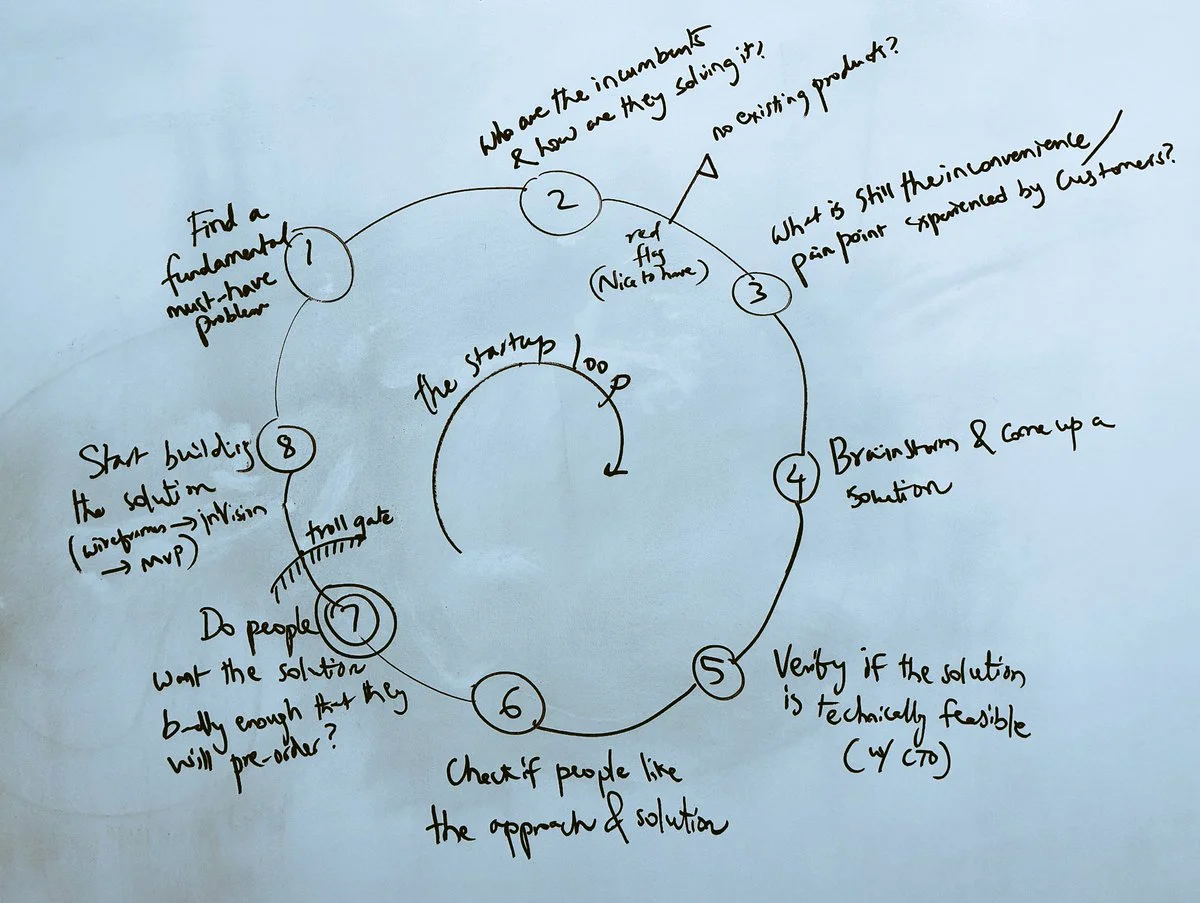 Who are the incumbents
& how are they solving it?
no existing products?
2
Find a
fundamental
must-have
problem
1
red
flag
(Nice to have)
What is still the inconvenience /
pain point experienced by customers?
3
the startup loop
Start building
the solution
(wireframes → InVision
→ MVP)
8
4
Brainstorm & come up a
solution
troll gate
7
Do people
want the solution
badly enough that they
will pre-order?
6
Check if people like
the approach & solution
5
Verify if the solution
is technically feasible
(w/ CTO)